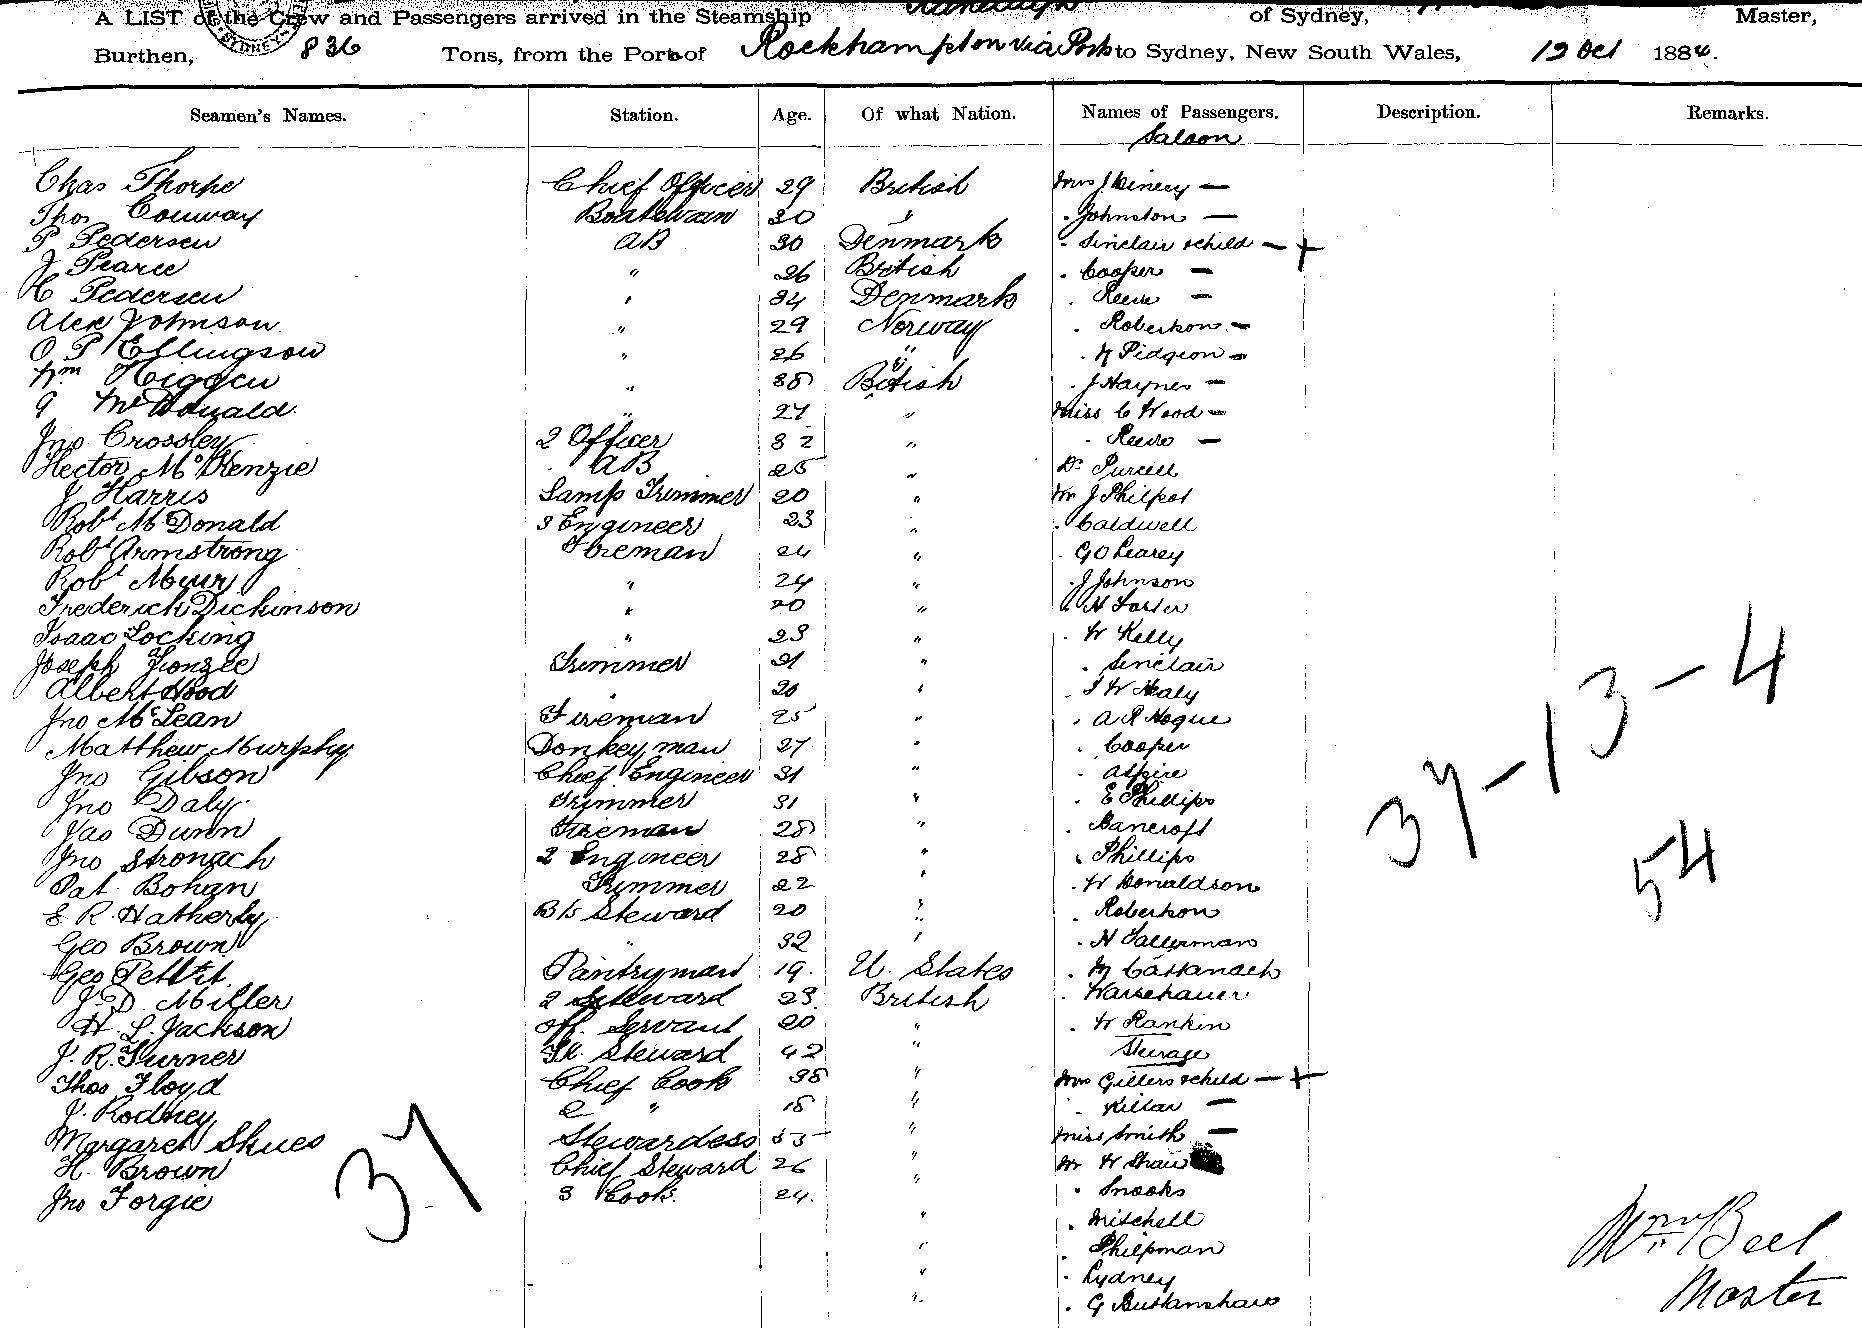 A LIST of the Crew and Passengers arrived in the Steamship Ranelagh of Sydney, Master,
Burthen, 836 Tons, from the Port of Rockhampton via Ports to Sydney, New South Wales, 12 Oct 1884.
Seamen's Names. Station. Age. Of what Nation. Names of Passengers. Description. Remarks.
Saloon
Chas Thorpe Chief Officer 29 British Mrs J Binery —
Thos Conway Boatswain 30 " . Johnston —
P Pedersen AB 30 Denmark . Sinclair & child — +
J Pearce " 26 British . Cooper —
C Pedersen " 34 Denmark . Reeve —
Alex Johnson " 29 Norway . Robertson —
O P Ellingson " 26 " . M Pidgeon —
Wm Higgen " 38 British . J Haynes —
A McDonald " 27 " Miss C Wood —
Jno Crossley 2 Officer 32 " . Reeve —
Hector McKenzie AB 25 " Dr Purcell
J Harris Lamp Trimmer 20 " Mr J Philpot
Robt McDonald 3 Engineer 23 " . Caldwell
Robt Armstrong Fireman 24 " G O Learey
Robt Muir " 24 " . J Johnson
Frederick Dickinson " 20 " . H Foster
Isaac Locking " 23 " . W Kelly
Joseph Trimmer 21 " . Sinclair
Albert Hood " 20 " . W Healy
Jno McLean Fireman 25 " . A R Hogue
Matthew Murphy Donkeyman 27 " . Cooper
Jno Gibson Chief Engineer 31 " . Aspire
Jno Daly Trimmer 31 " . E Phillips
Jas Dunn Fireman 28 " . Bancroft
Jno Stronach 2 Engineer 28 " . Phillips
Pat Bohan Trimmer 22 " . W Donaldson
E R Hatherly B/S Steward 20 " . Robertson
Geo Brown " 32 " . H Sallerman
Geo Pettit Pantryman 19 U. States . M Cattanach
J. D. Miller 2 Steward 23 British . Warschauer
H. L. Jackson Off. Servant 20 " . W Rankin
J. R. Turner Steward 42 " Steerage
Thos Floyd Chief Cook 38 " Mrs Gillers & child — +
J. Rodney 2 " 18 " . Killar —
Margaret Skues Stewardess 53 " Miss Smith —
H. Brown Chief Steward 26 " Mr W Shaw
Jno Forgie 3 Cook 24 " . Snooks
" . Mitchell
" . Philpman
" . Lydney
" . G Buttanshaw
37
37 — 13 — 4
54
Wm Beel
Master